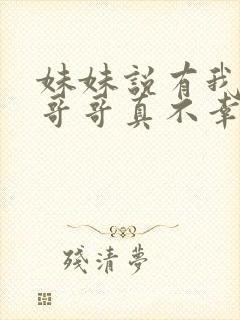 妹妹說有我
哥哥真不幸
殘清夢